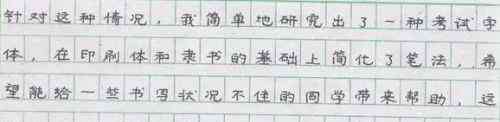 针对这种情况，我简单地研究出了一种考试字
体，在印刷体和隶书的基础上简化了笔法，希
望能给一些书写状况不佳的同学带来帮助，这